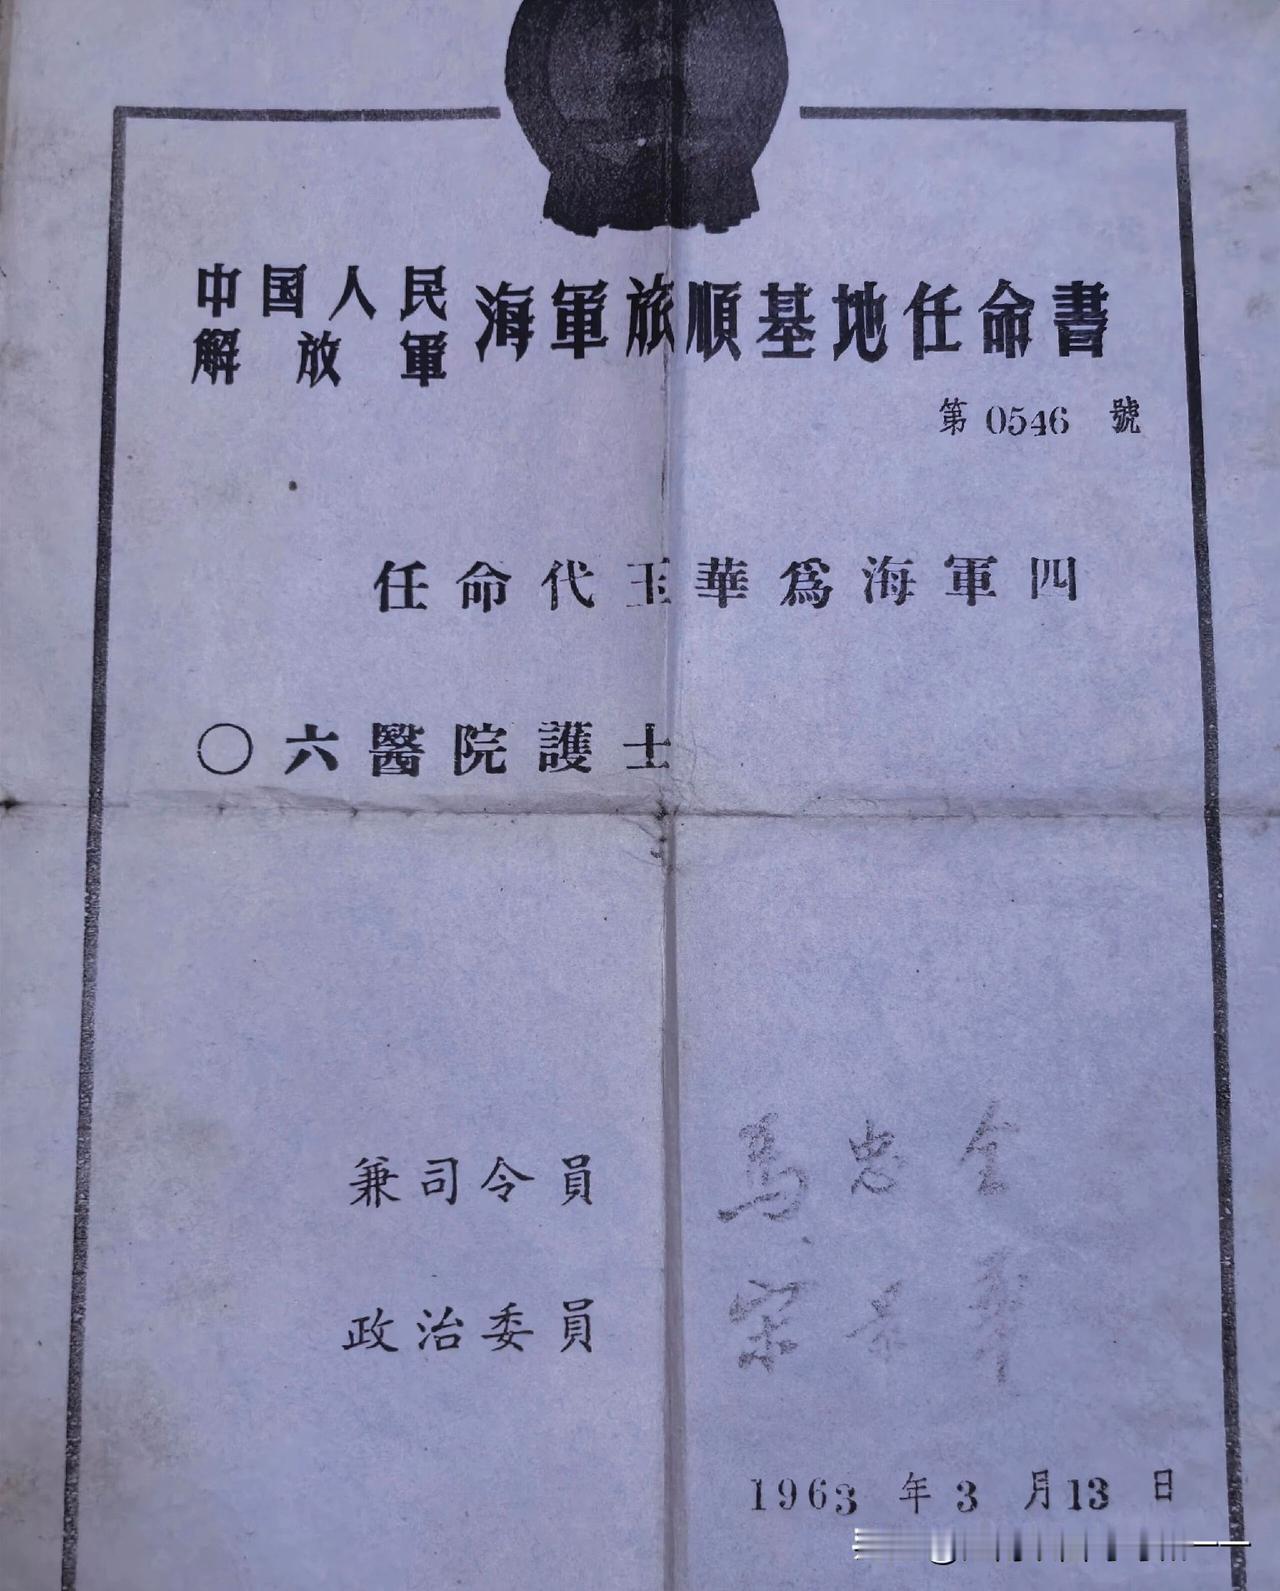 中国人民
解放軍
海軍旅順基地任命書
第0546 號
任命代玉華爲海軍四
〇六醫院護士
兼司令員 馬忠全
政治委員 宋景華
1963年3月13日